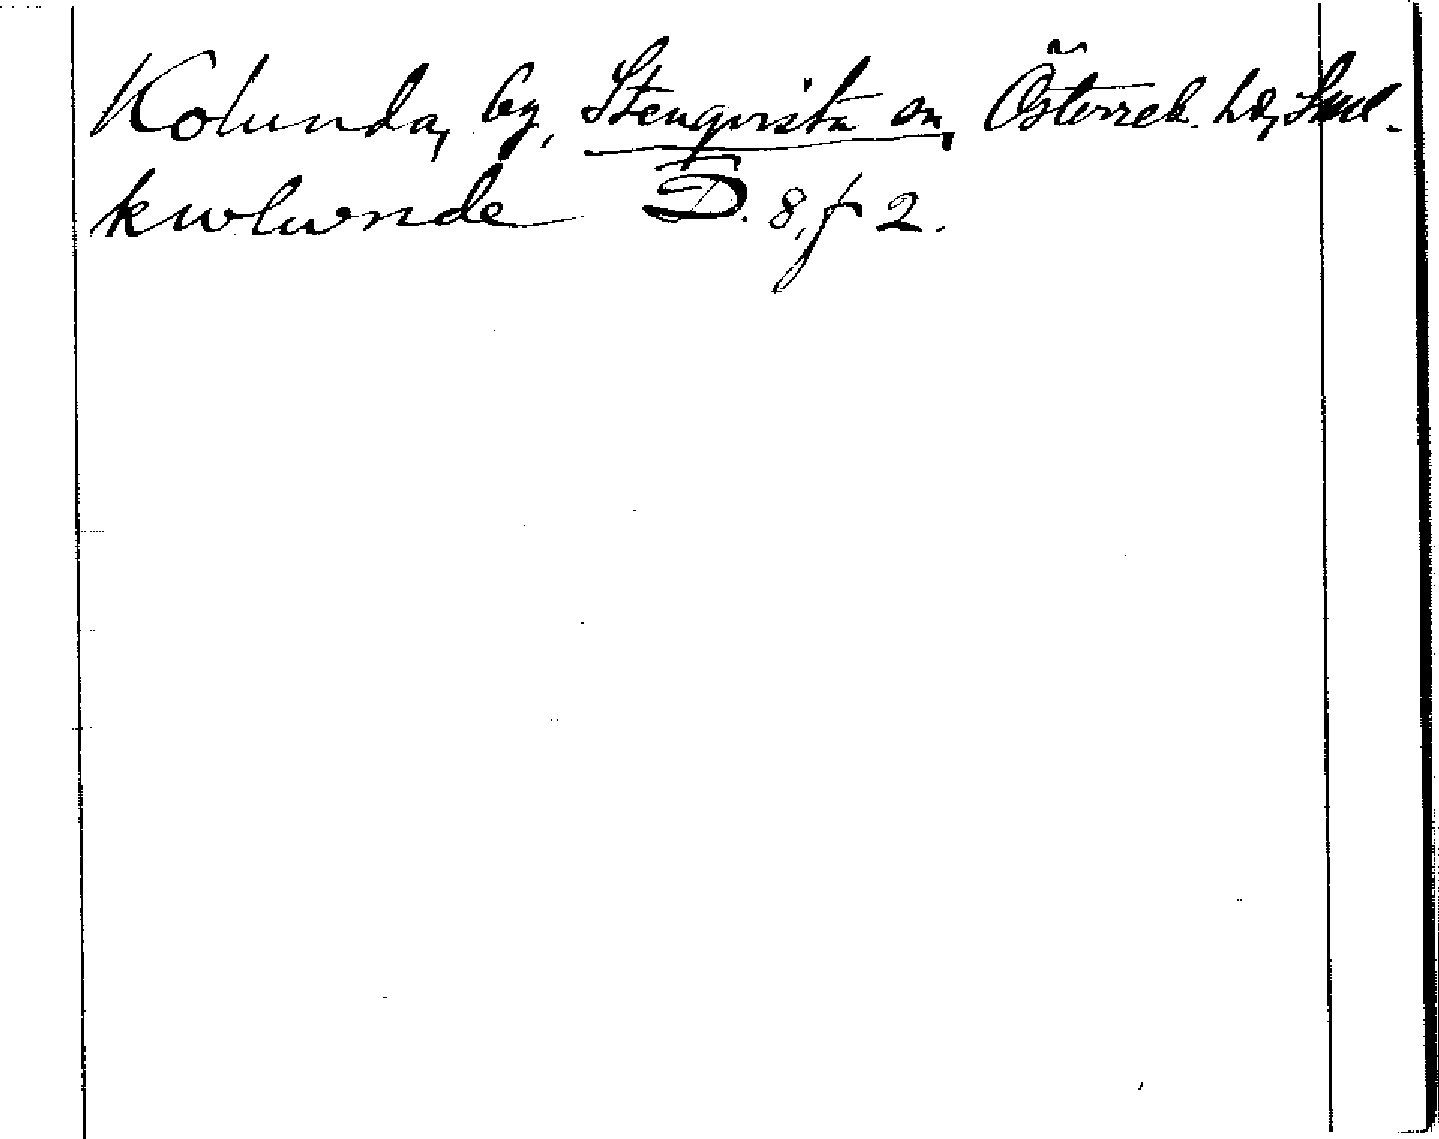 Kolunda, by, Stenqvista sn, Österrek. hd, Sml.
kwlwnde D. 8, f 2.